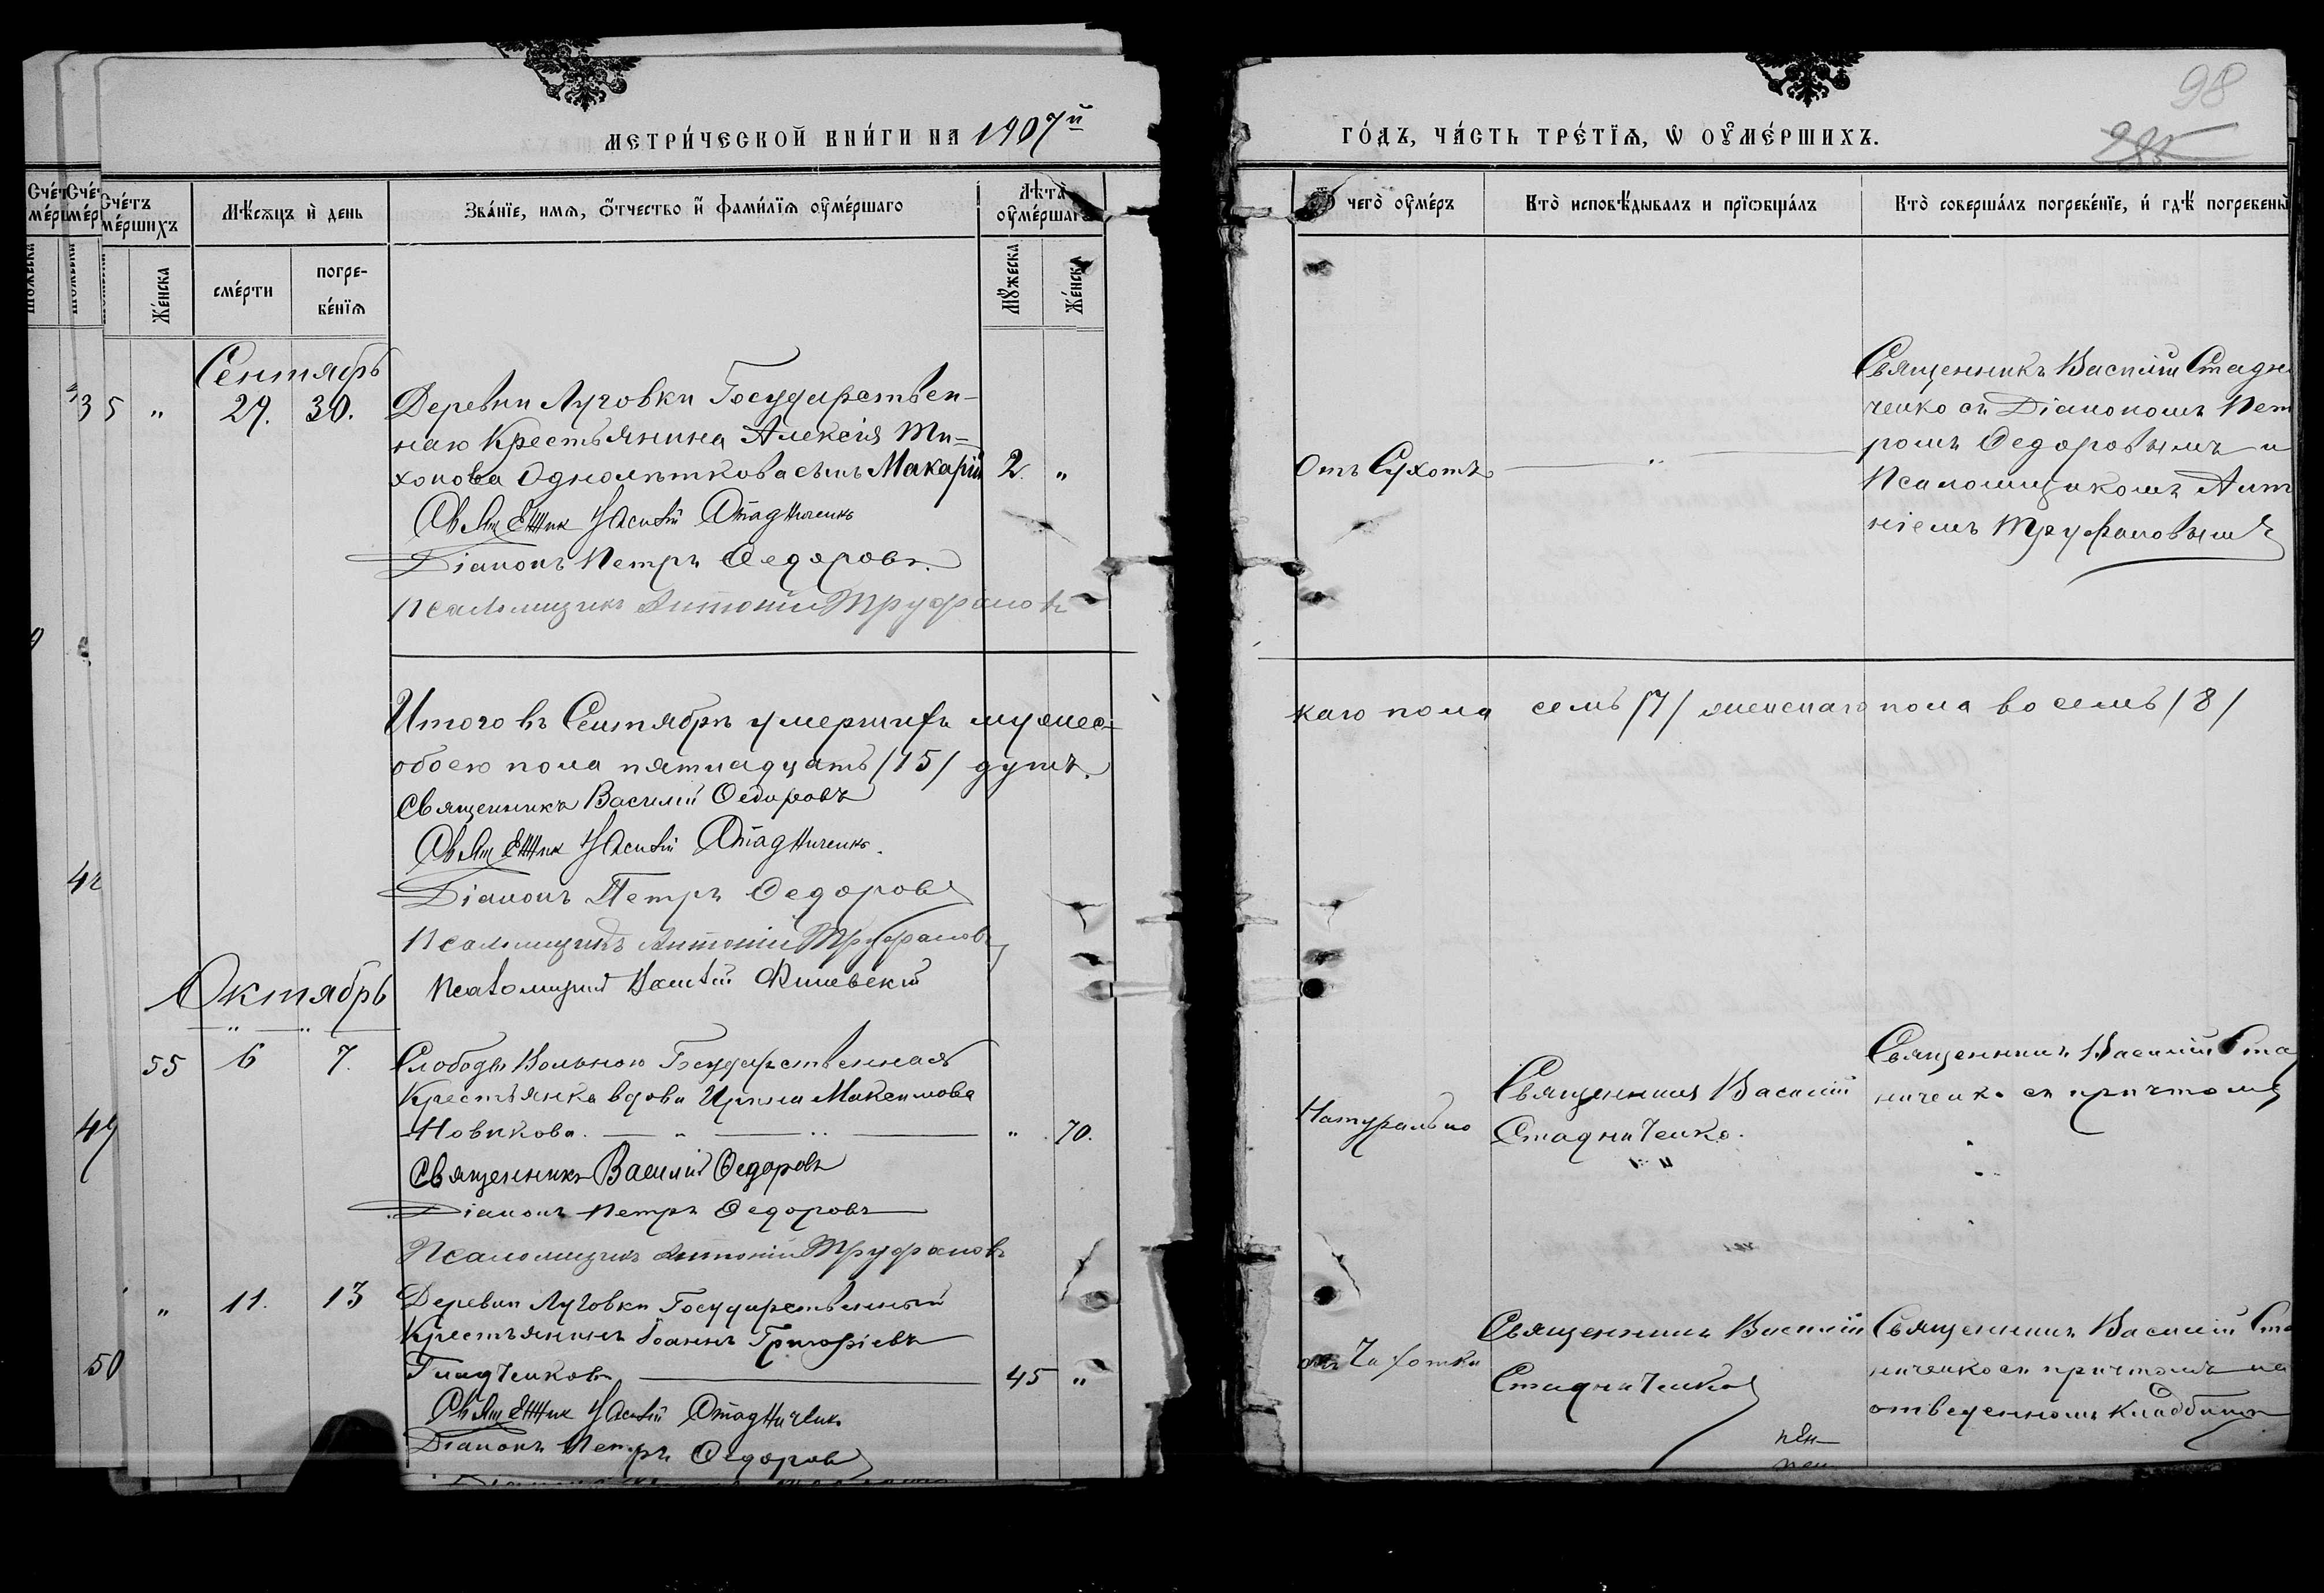 98
МЕТРИ́ЧЕСКОЙ КНИ́ГИ НА 1907й
ГО́ДЪ, ЧА́СТЬ ТРЕ́ТІѦ, Ѡ ОУМЕ́РШИХЪ.
Сче́тъ оумершихъ
Мѣ́сѧцъ и҆ день
Зва́нїе, имѧ, ѻ҆́тчество и҆ фами́лїѧ оуме́ршаго
Лѣта̀ оуме́ршаго
Ѿ чегѡ̀ оуме́ръ
Кто̀ исповѣ́дывалъ и прїѡбща́лъ
Кто̀ соверша́лъ погребе́нїе, и҆ гдѣ̀ погребены̀
Же́нска
сме́рти
погре-
бе́нїѧ
Мꙋ́жеска
Же́нска
Сентябрь
35 " 29. 30.
Деревни Луговки Государствен-
наго Крестьянина Алексія Ти-
хонова Однолѣткова сынъ Макарій 2. "
Священник Василій Стадниченко
Діаконъ Петръ Федоровъ.
Псаломщикъ Антоній Труфановъ
Отъ Сухотъ
Священникъ Василій Стадни
ченко съ Діакономъ Пет
ромъ Федоровымъ и
Псаломщикомъ Анто
ніемъ Труфановымъ
Итого въ Сентябрѣ умершихъ мужес-
каго пола семь /7/ женскаго пола восемь /8/
обоего пола пятнадцать /15/ душъ.
Священникъ Василий Федоровъ
Священник Василій Стадниченко.
Діаконъ Петръ Федоровъ
Псаломщикъ Антоній Труфановъ
Псаломщикъ Василій
42
Октябрь
55 6 7.
Слободы Вольною Государственная
Крестьянка вдова Ирина Максимова
Новикова. " 70.
Священникъ Василий Федоровъ
Діаконъ Петръ Федоровъ
Псаломщикъ Антоній Труфановъ
Натурально
Священникъ Василій
Стадниченко.
Священникъ Василій Стад
ниченко съ причтомъ
49
" 11. 13
Деревни Луговки Государственный
Крестьянинъ Іоаннъ Григоріевъ
Гладченковъ 45 "
Священник Василій Стадниченк
Діаконъ Петръ Федоровъ
50
отъ Чахотки
Священникъ Василій
Стадниченко
Священникъ Василій Ста
ниченко съ причтомъ на
отведенномъ кладбищѣ